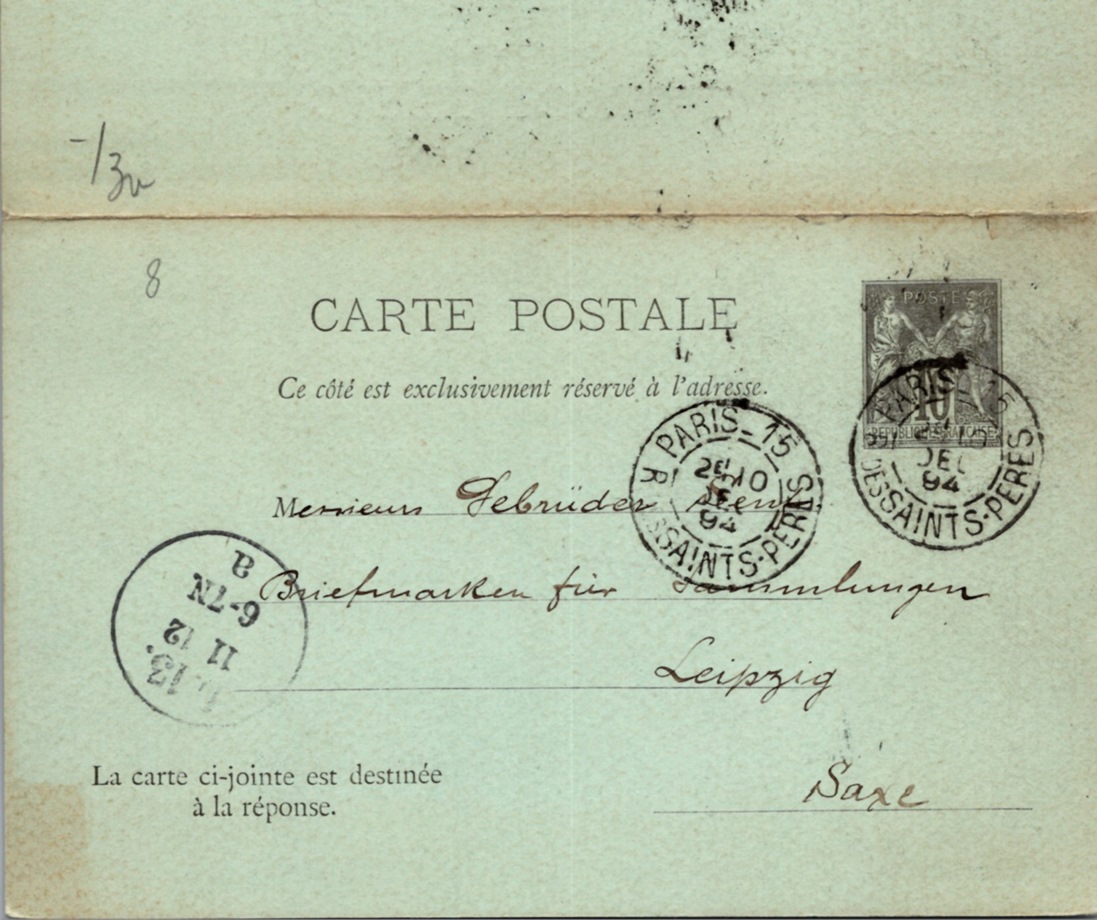 8
CARTE POSTALE
POSTE
10
REPUBLIQUE FRANÇAISE
Ce côté est exclusivement réservé à l'adresse.
PARIS_15
10
DEC
94
R DES SAINTS-PERES
PARIS_15
DEC
94
DES SAINTS-PERES
Messieurs Gebrüder
Briefmarken für Sammlungen
Leipzig
Saxe
L. 13.
11 12
6-7N
a
La carte ci-jointe est destinée
à la réponse.